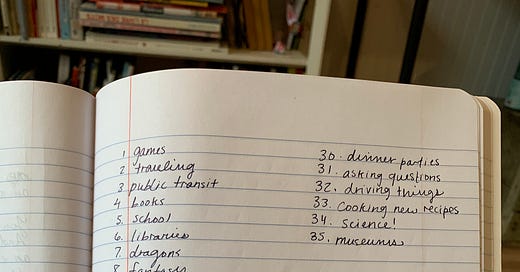 1 games
2 traveling
3 public transit
4 books
5. school
6. libraries
7. dragons
8 fantasy
30. dinner parties
31. asking questions
32. driving things
33. Cooking new recipes
34. science!
35. museums